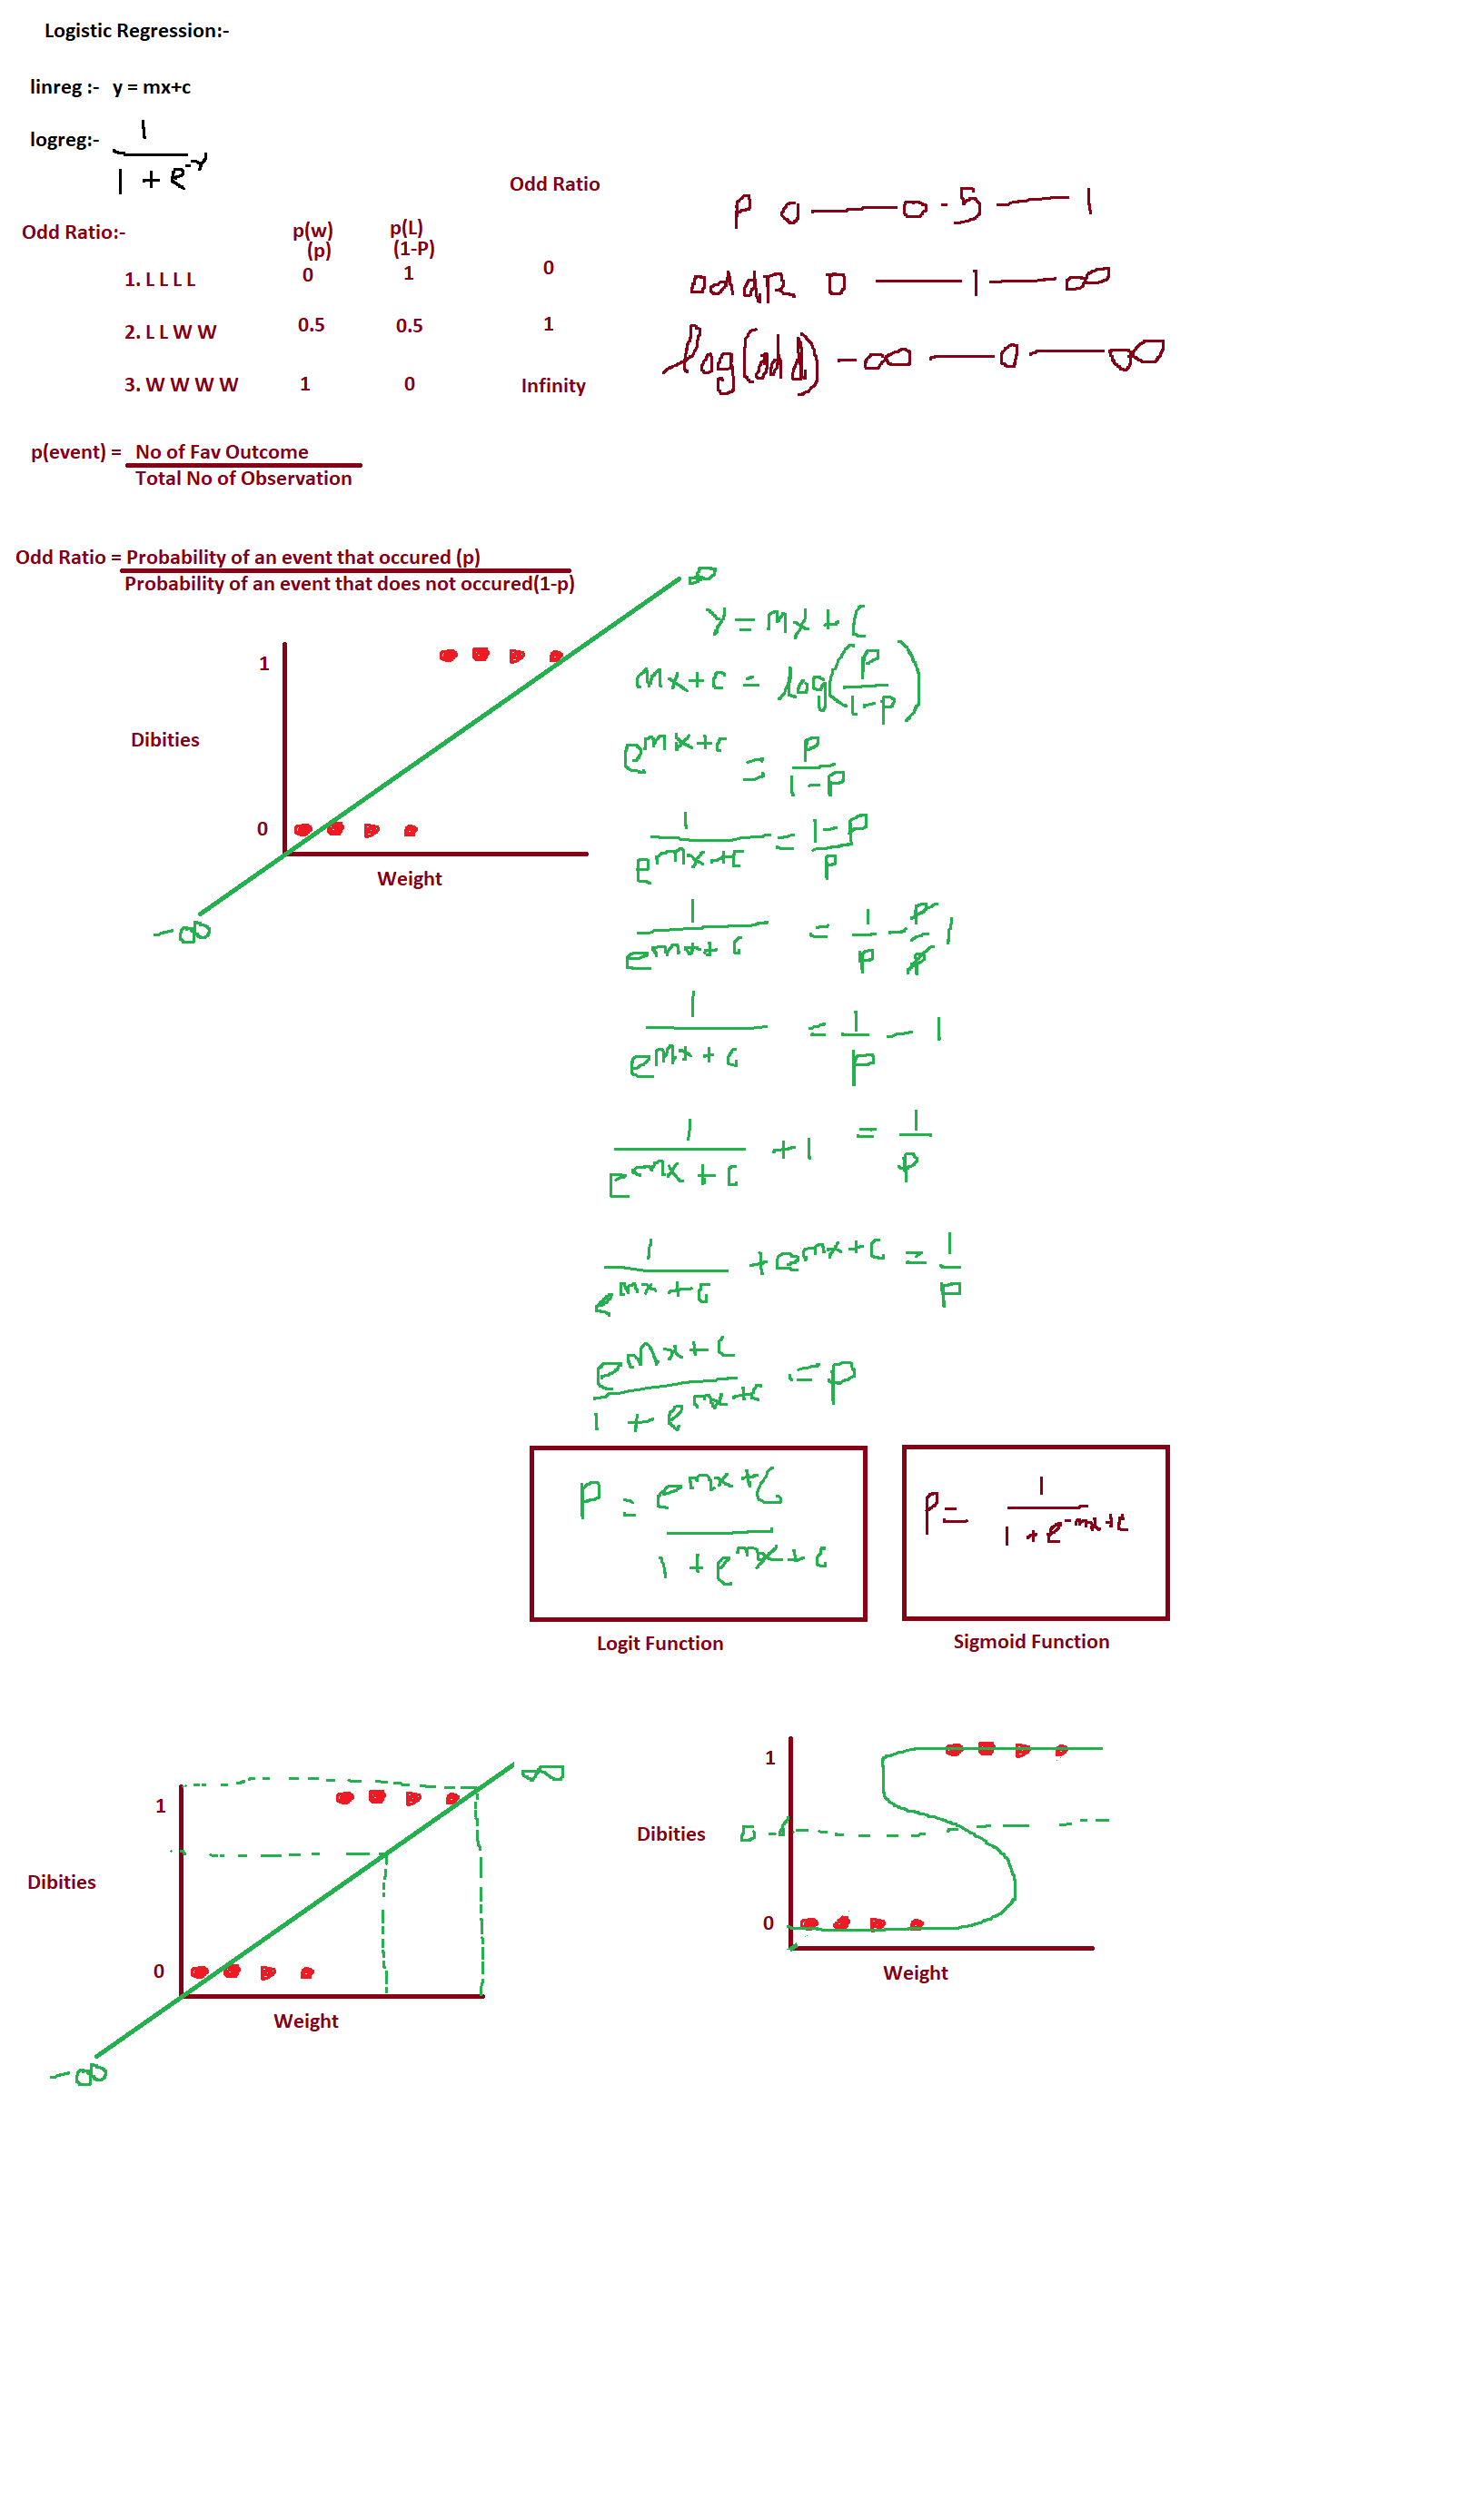 Logistic Regression:-
linreg :- y = mx+c
logreg:- 1
1 + e^-y
Odd Ratio
P 0 — 0.5 — 1
Odd Ratio:- p(w) p(L)
(p) (1-P)
1. L L L L 0 1 0
oddR 0 — 1 — ∞
2. L L W W 0.5 0.5 1
log(odd) -∞ — 0 — ∞
3. W W W W 1 0 Infinity
p(event) = No of Fav Outcome
Total No of Observation
Odd Ratio = Probability of an event that occured (p)
Probability of an event that does not occured(1-p)
∞
1
Dibities
0
Weight
-∞
y = mx + c
mx+c = log(p/1-p)
e^mx+c = p/1-p
1/e^mx+c = 1-p/p
1/e^mx+c = 1/p - p/p 1
1/e^mx+c = 1/p - 1
1/e^mx+c + 1 = 1/p
1/e^mx+c + e^mx+c = 1/p
e^mx+c/1 + e^mx+c = p
P = e^mx+c/1 + e^mx+c
Logit Function
P = 1/1 + e^-mx+c
Sigmoid Function
∞
1
Dibities
0
Weight
-∞
1
Dibities
0
Weight